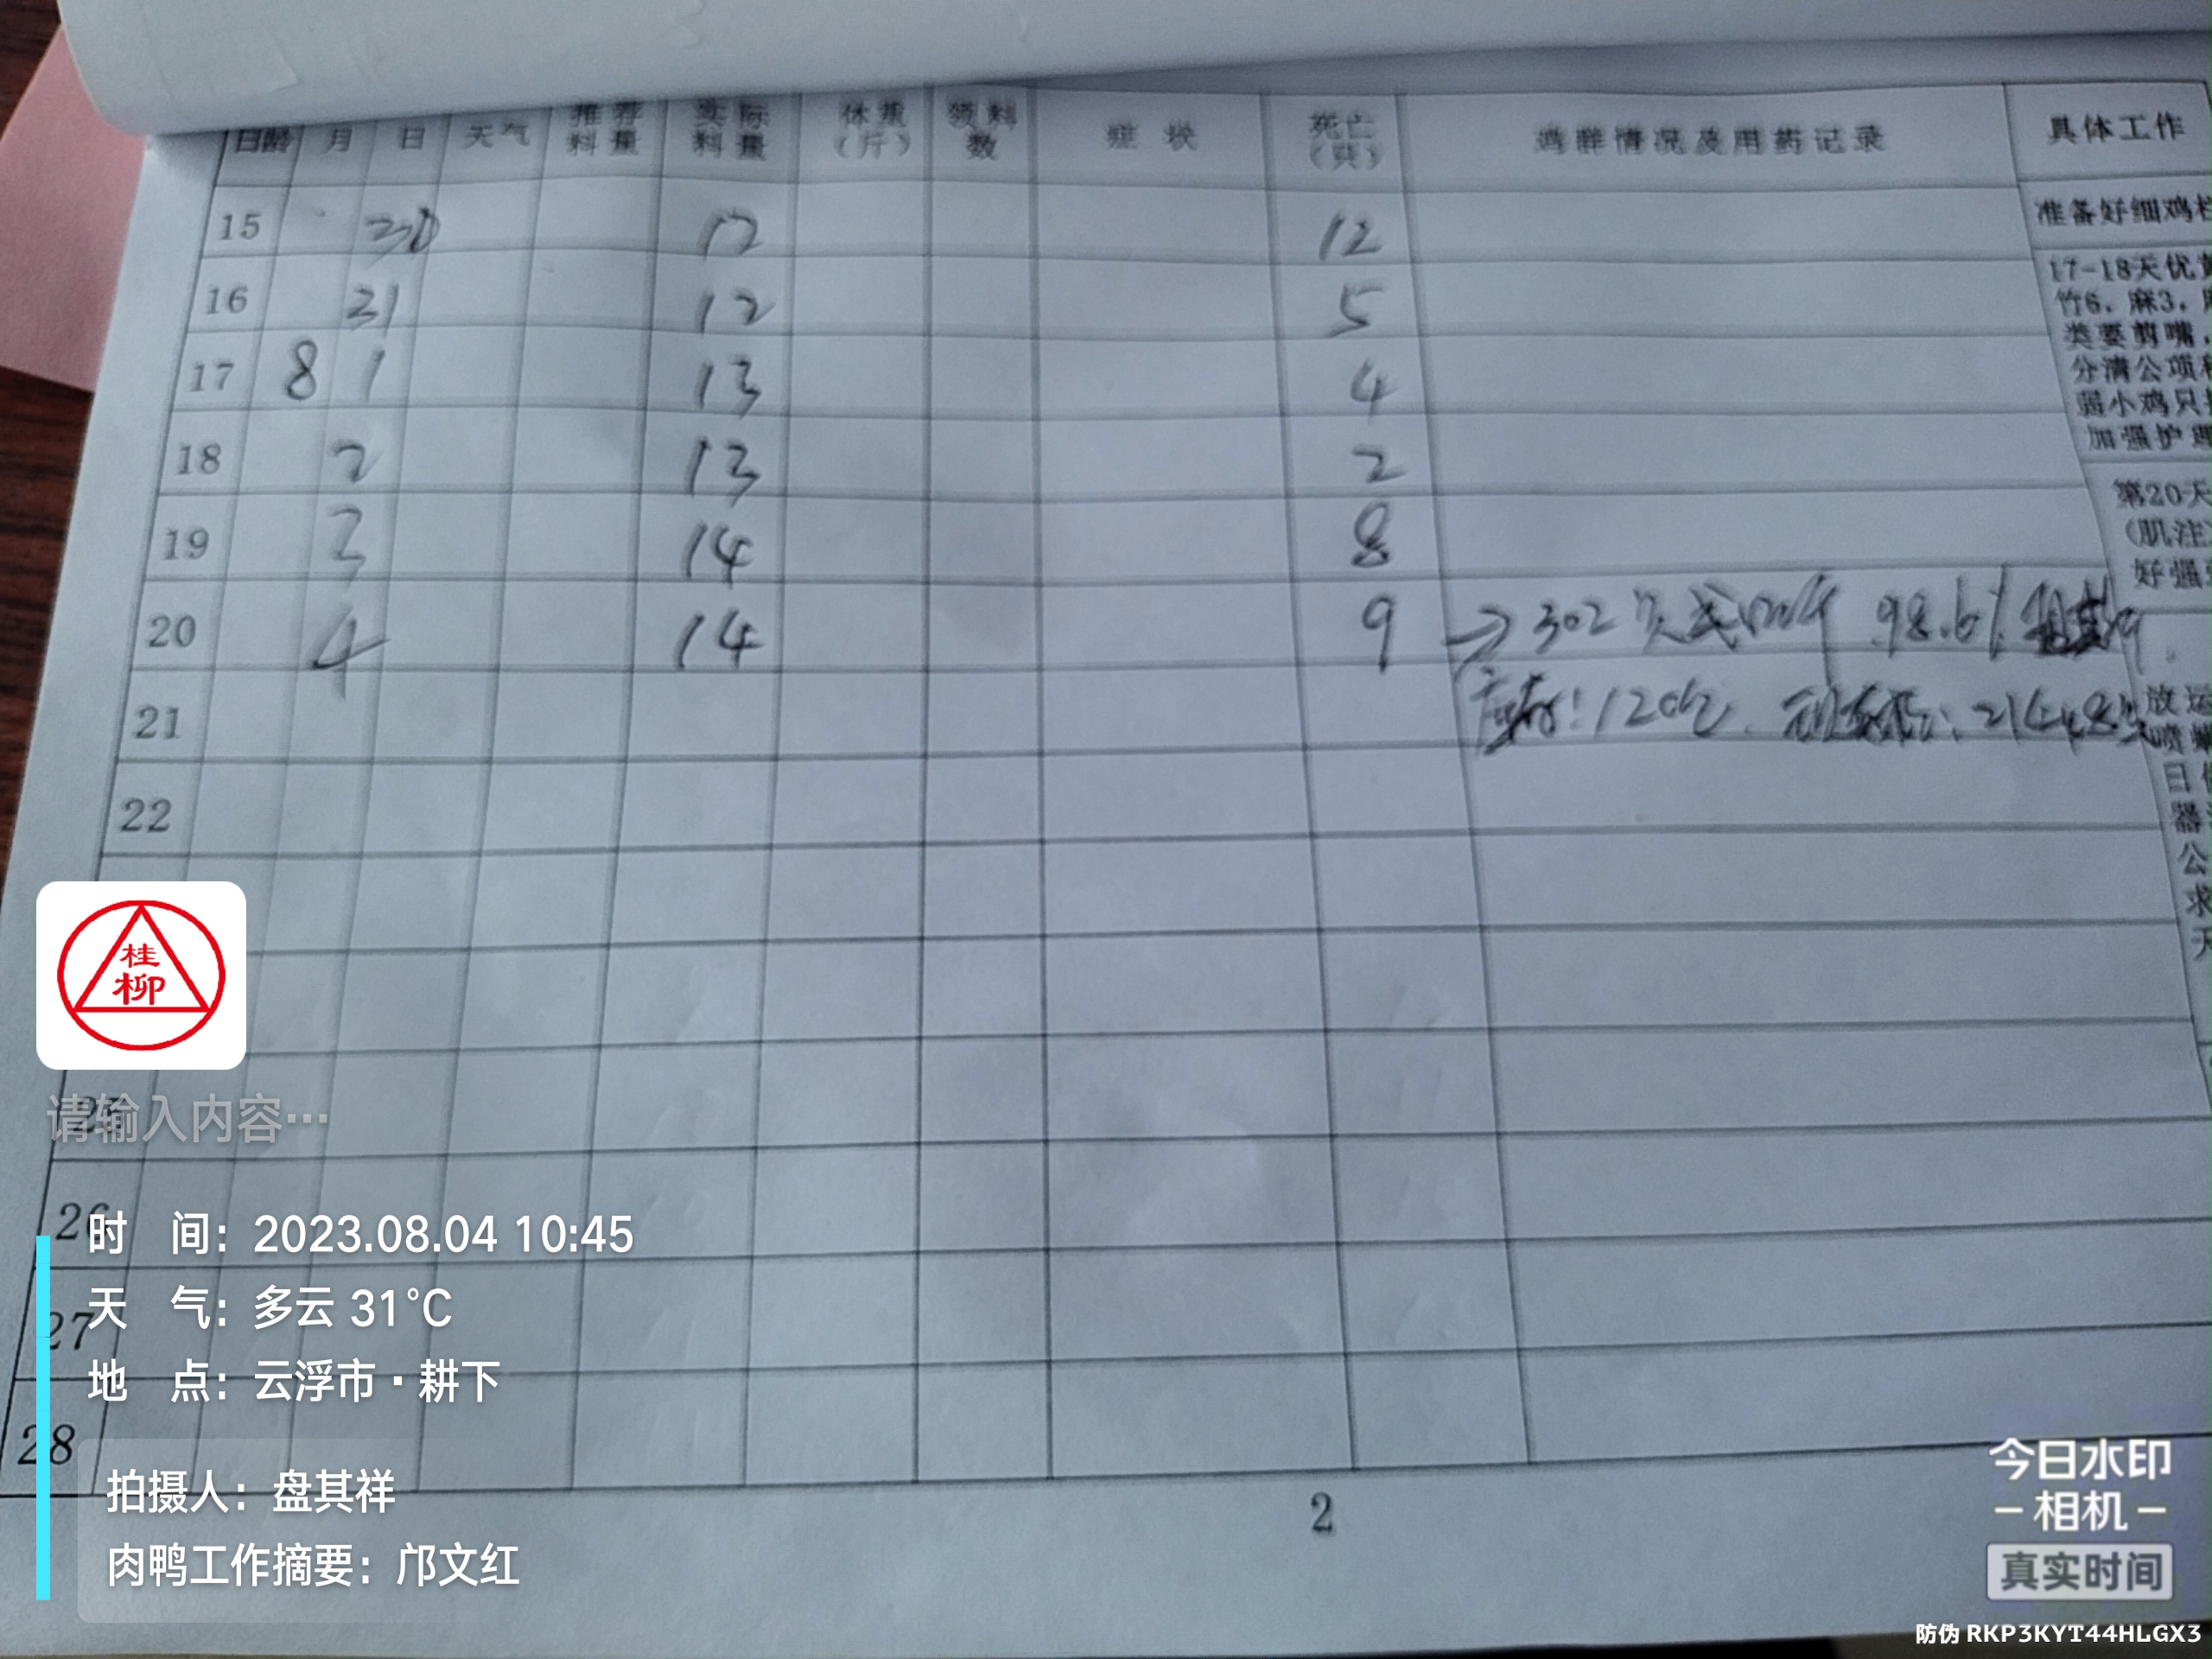 日龄 月 日 天气 推荐料量 实际料量 体重(斤) 领料数 症状 死亡(只) 鸡群情况及用药记录 具体工作
15 30 12 12 准备好细鸡
16 31 12 5 17-18天优
竹6，麻3，
17 8 1 13 4 类要剪嘴，
分清公项
弱小鸡只
18 2 13 2 加强护理
第20天
19 3 14 8 (肌注
好强
20 4 14 9 →302 98.6%
21 120 放运
22 日
器
公
求
天
桂
柳
请输入内容…
26
27
28
时 间：2023.08.04 10:45
天 气：多云 31°C
地 点：云浮市·耕下
拍摄人：盘其祥
肉鸭工作摘要：邝文红
2
今日水印
-相机-
真实时间
防伪 RKP3KYT44HLGX3